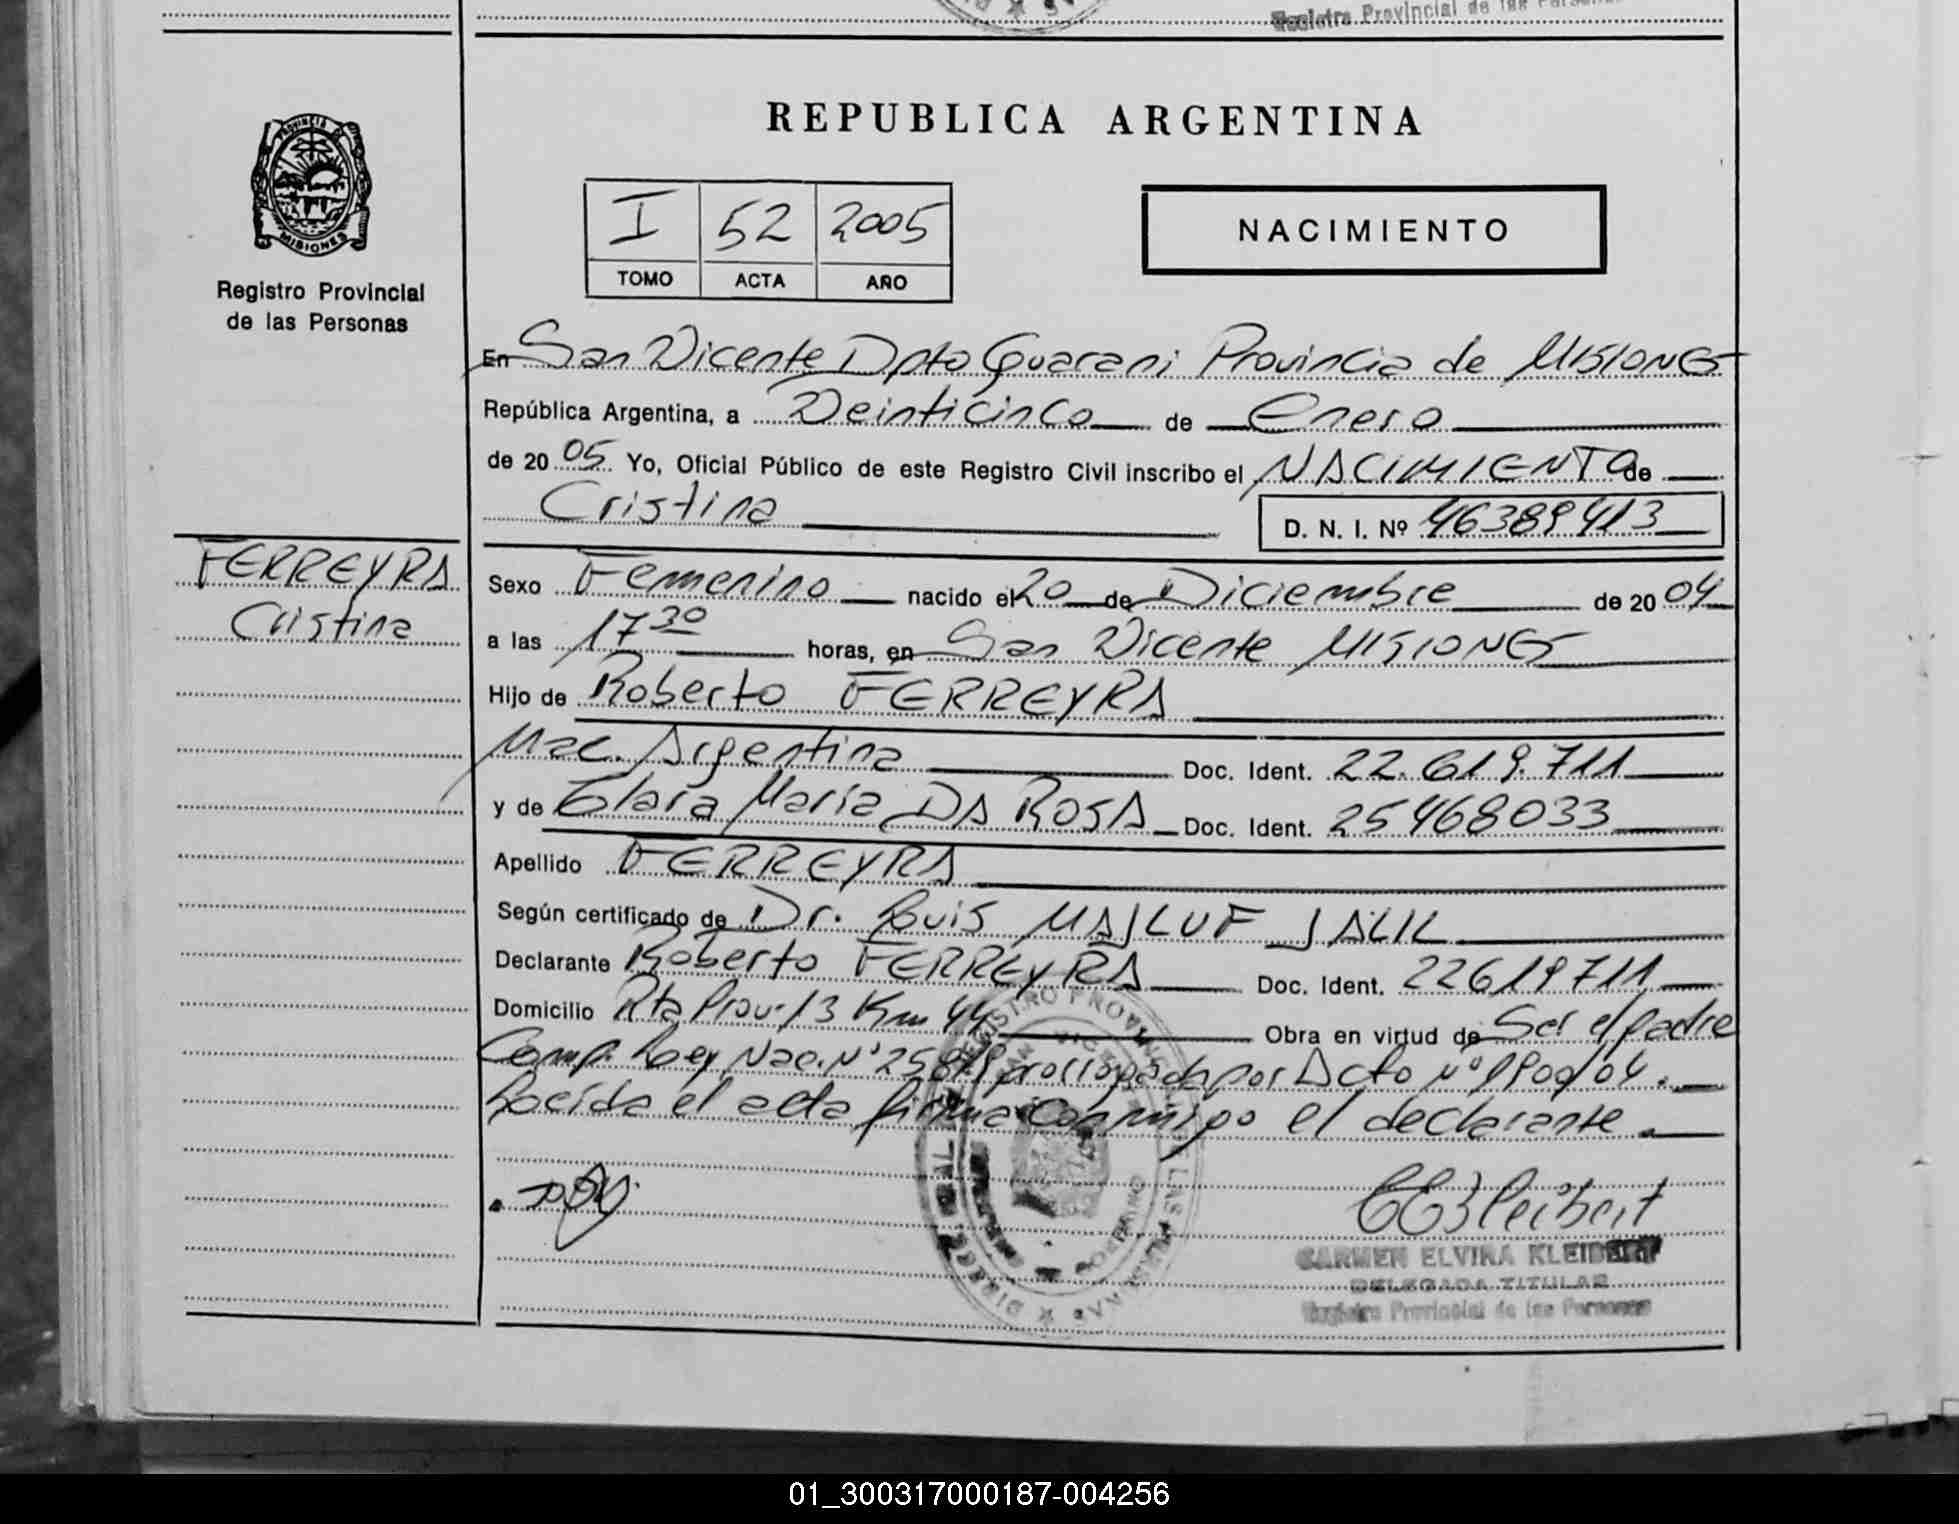 Registro Provincial de las Personas
REPUBLICA ARGENTINA
PROVINCIA DE
MISIONES
Registro Provincial
de las Personas
I 52 2005
TOMO ACTA AÑO
NACIMIENTO
En San Vicente Dpto Guarani Provincia de MISIONES
República Argentina, a Veinticinco de Enero
de 20 05 Yo, Oficial Público de este Registro Civil inscribo el NACIMIENTO de
Cristina D. N. I. Nº 46389413
FERREYRA
Cristina
Sexo Femenino nacido el 20 de Diciembre de 20 04
a las 17 30 horas, en San Vicente MISIONES
Hijo de Roberto FERREYRA
Nac. Argentina Doc. Ident. 22.619.711
y de Clara Maria DA ROSA Doc. Ident. 25468033
Apellido FERREYRA
Según certificado de Dr. Luis MAJLUF JALIL
Declarante Roberto FERREYRA Doc. Ident. 22619711
Domicilio Rta Prov. 13 Km 44 Obra en virtud de Ser el padre
Comp. Ley Nac. Nº prorrogada por Dcto Nº
Leída el acta firma conmigo el declarante.
CARMEN ELVIRA KLEIBERT
DELEGADA TITULAR
Registro Provincial de las Personas
01_300317000187-004256